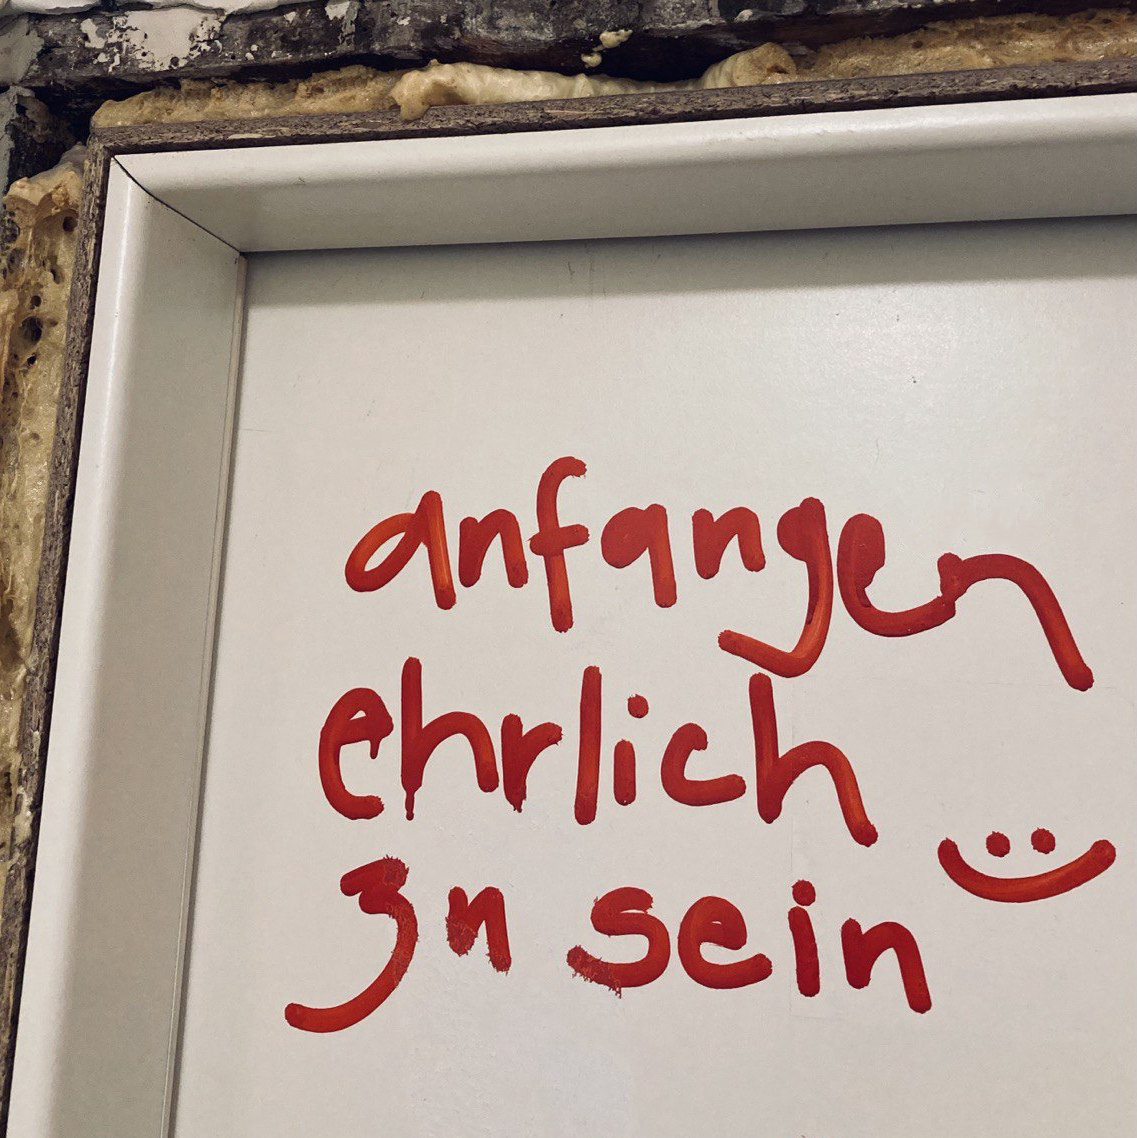 anfangen
ehrlich
zu sein